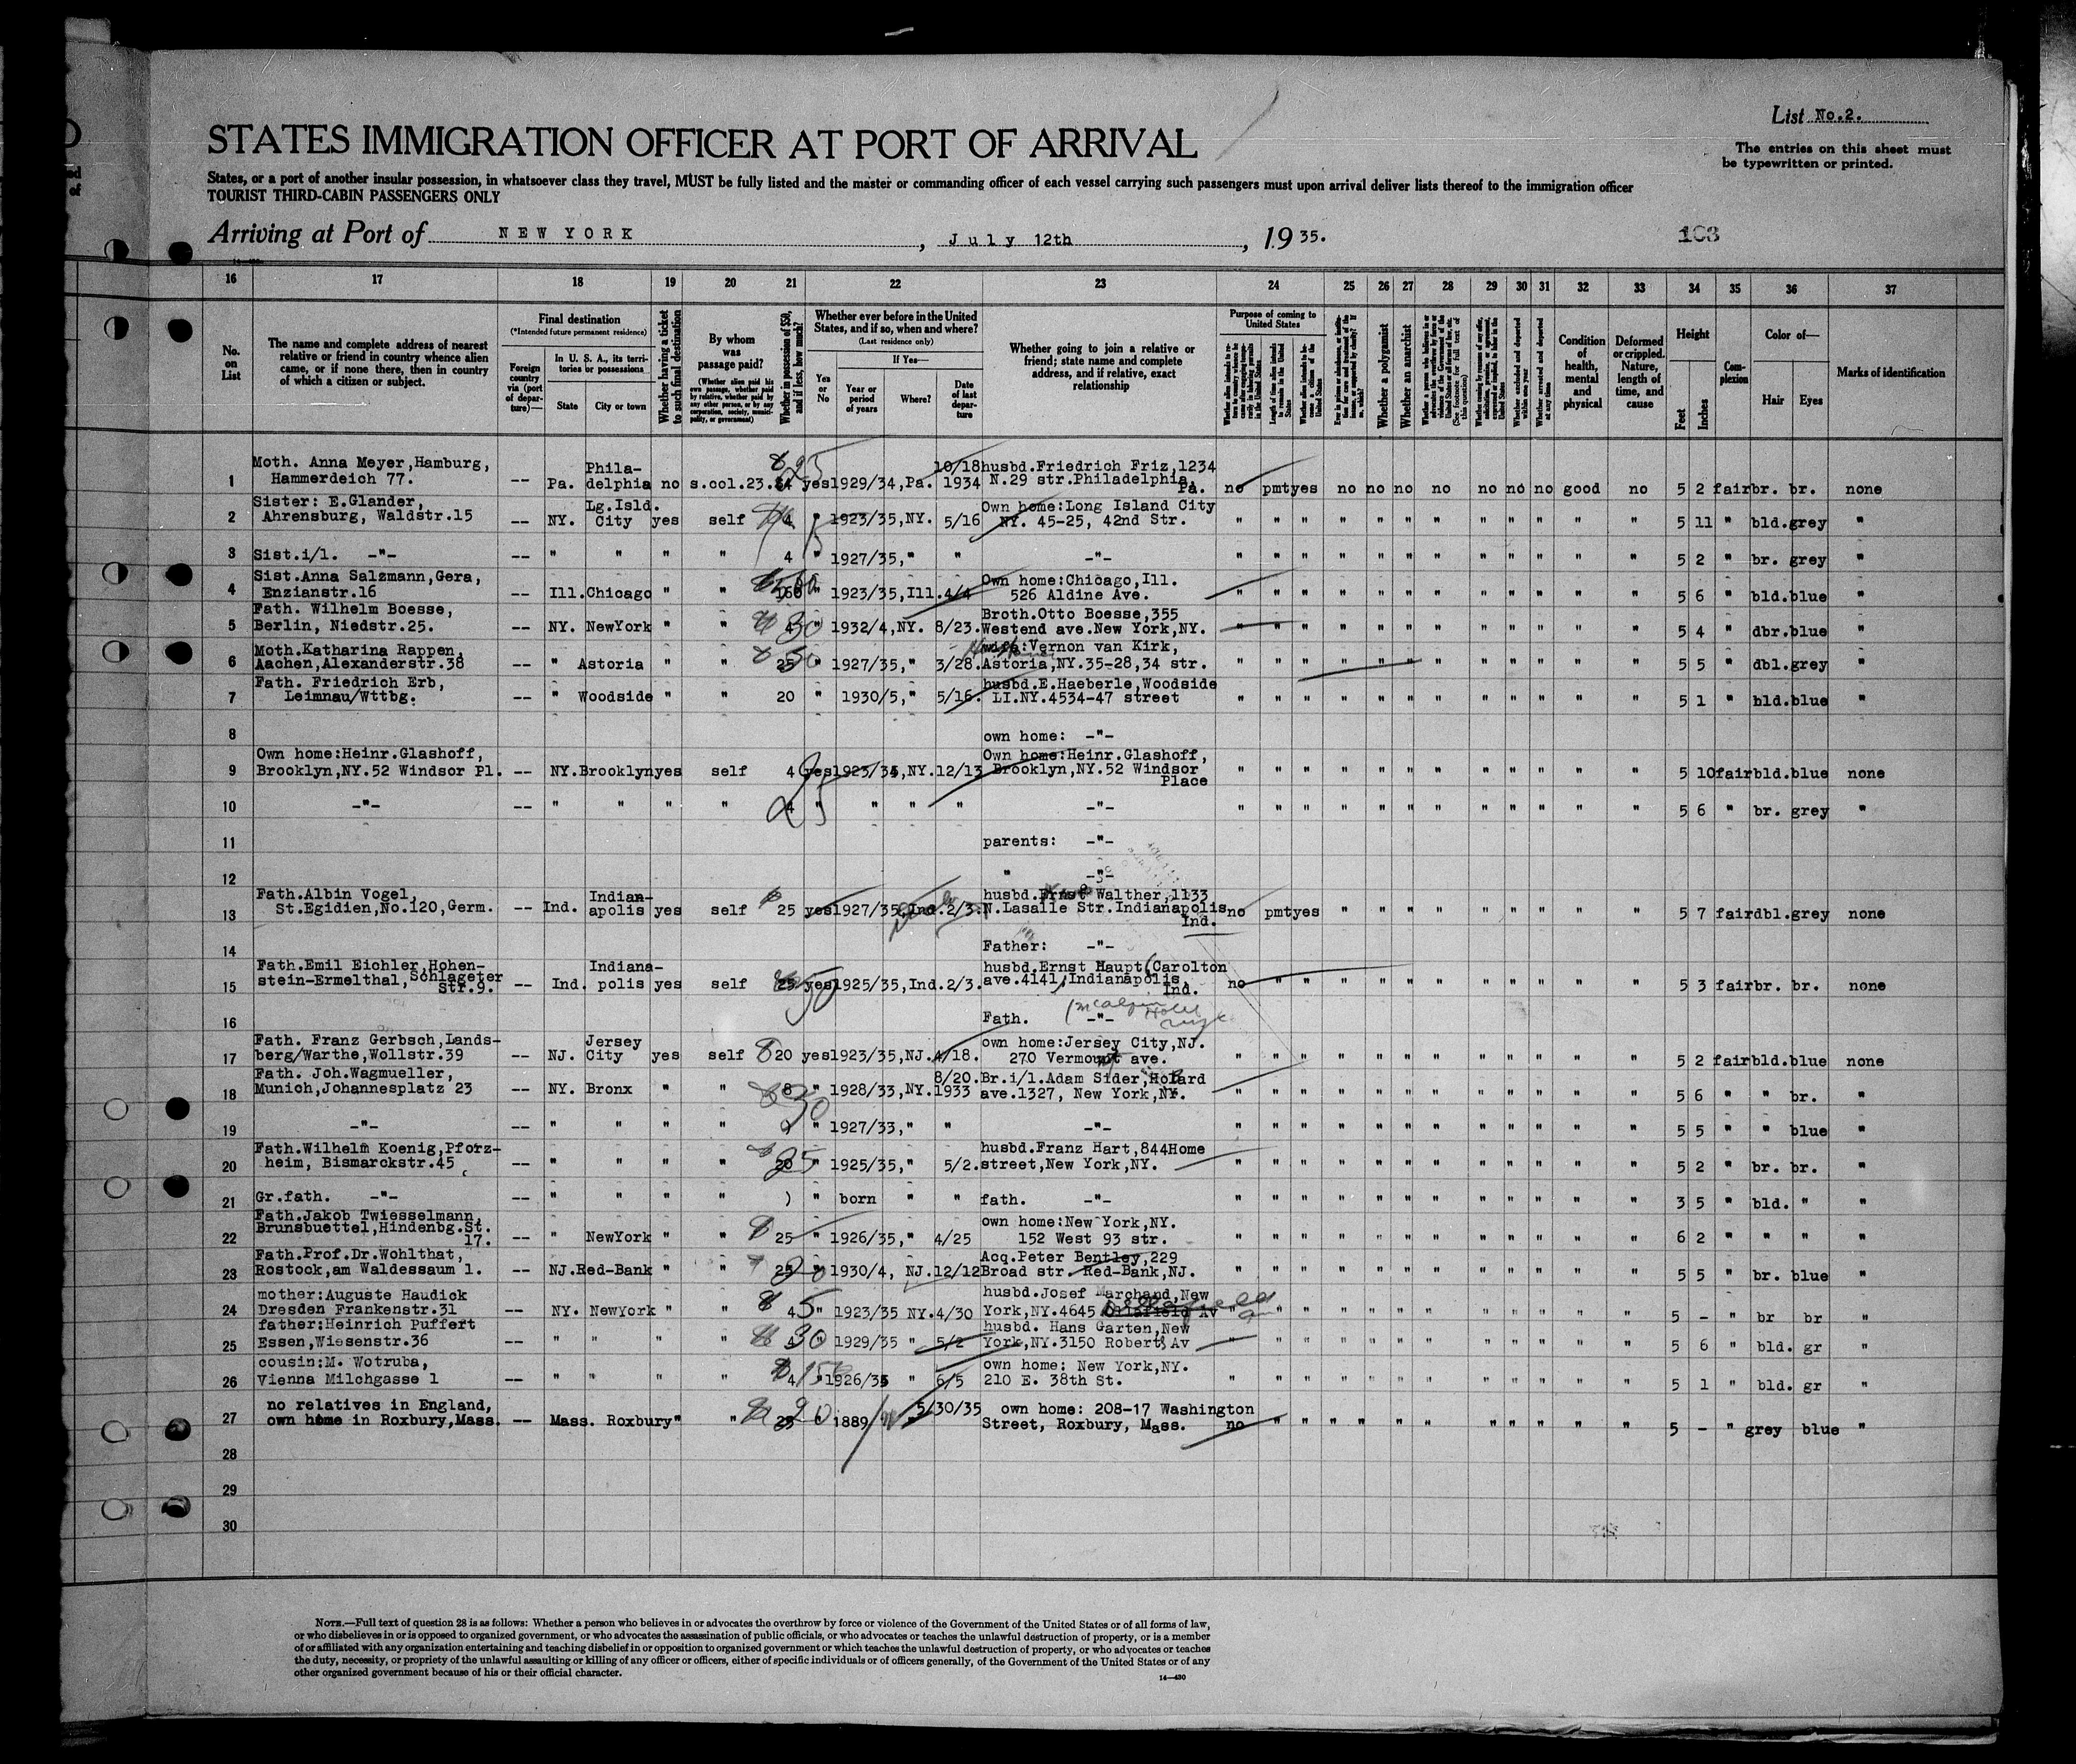 List No.2.
STATES IMMIGRATION OFFICER AT PORT OF ARRIVAL
The entries on this sheet must
be typewritten or printed.
States, or a port of another insular possession, in whatsoever class they travel, MUST be fully listed and the master or commanding officer of each vessel carrying such passengers must upon arrival deliver lists thereof to the immigration officer
TOURIST THIRD-CABIN PASSENGERS ONLY
Arriving at Port of NEW YORK, July 12th, 1935.
103
16 17 18 19 20 21 22 23 24 25 26 27 28 29 30 31 32 33 34 35 36 37
No. on List
The name and complete address of nearest relative or friend in country whence alien came, or if none there, then in country of which a citizen or subject.
Final destination
(*Intended future permanent residence)
Foreign country via (port of departure)—
In U. S. A., its territories or possessions
State
City or town
Whether having a ticket to such final destination
By whom was passage paid?
(Whether alien paid his own passage, whether paid by relative, whether paid by any other person, or by any corporation, society, municipality, or government)
Whether in possession of $50, and if less, how much?
Whether ever before in the United States, and if so, when and where?
(Last residence only)
Yes or No
If Yes—
Year or period of years
Where?
Date of last departure
Whether going to join a relative or friend; state name and complete address, and if relative, exact relationship
Purpose of coming to United States
Whether a polygamist
Whether an anarchist
Condition of health, mental and physical
Deformed or crippled. Nature, length of time, and cause
Height
Feet
Inches
Complexion
Color of—
Hair
Eyes
Marks of identification
1 Moth. Anna Meyer,Hamburg, Hammerdeich 77. -- Pa. Philadelphia no s.col.23. yes 1929/34,Pa. 10/18 1934 husbd.Friedrich Friz,1234 N.29 str.Philadelphia, Pa. no pmt yes no no no no no no no good no 5 2 fair br. br. none
2 Sister: E.Glander, Ahrensburg, Waldstr.15 -- NY. Lg.Isld. City yes self 4 " 1923/35,NY. 5/16 Own home:Long Island City NY. 45-25, 42nd Str. " " " " " " " " " " " " 5 11 " bld. grey "
3 Sist.i/l. -"- -- " " " " 4 " 1927/35," " -"- " " " " " " " " " " " " 5 2 " br. grey "
4 Sist.Anna Salzmann,Gera, Enzianstr.16 -- Ill. Chicago " " 160 " 1923/35,Ill. 4/4 Own home:Chicago,Ill. 526 Aldine Ave. " " " " " " " " " " " " 5 6 " bld. blue "
5 Fath. Wilhelm Boesse, Berlin, Niedstr.25. -- NY. NewYork " " 4 30 " 1932/4,NY. 8/23. Broth.Otto Boesse,355 Westend ave.New York,NY. " " " " " " " " " " " " 5 4 " dbr. blue "
6 Moth.Katharina Rappen, Aachen,Alexanderstr.38 -- " Astoria " " 25 50 " 1927/35," 3/28. :Vernon van Kirk, Astoria,NY.35-28,34 str. " " " " " " " " " " " " 5 5 " dbl. grey "
7 Fath. Friedrich Erb, Leimnau/Wttbg. -- " Woodside " " 20 " 1930/5," 5/16. husbd.E.Haeberle,Woodside LI.NY.4534-47 street " " " " " " " " " " " " 5 1 " bld. blue "
8 own home: -"-
9 Own home:Heinr.Glashoff, Brooklyn,NY.52 Windsor Pl. -- NY. Brooklyn yes self 4 yes 1923/34,NY. 12/13 Own home:Heinr.Glashoff, Brooklyn,NY.52 Windsor Place " " " " " " " " " " " " 5 10 fair bld. blue none
10 -"- -- " " " " 4 25 " " " " -"- " " " " " " " " " " " " 5 6 " br. grey "
11 parents: -"-
12 " -"-
13 Fath.Albin Vogel, St.Egidien,No.120,Germ. -- Ind. Indianapolis yes self 25 yes 1927/35,Ind. 2/3. husbd.Ernst Walther,1133 N.Lasalle Str.Indianapolis Ind. no pmt yes " " " " " " " " " 5 7 fair dbl. grey none
14 Father: -"-
15 Fath.Emil Eichler,Hohenstein-Ermelthal,Schlageter Str.9. -- Ind. Indianapolis yes self 25 50 yes 1925/35,Ind. 2/3. husbd.Ernst Haupt(Carolton ave.4141,Indianapolis, Ind. no " " " " " " " " " " " 5 3 fair br. br. none
16 Fath. -"- (McAlpin Hotel
17 Fath. Franz Gerbsch,Landsberg/Warthe,Wollstr.39 -- NJ. Jersey City yes self 20 yes 1923/35,NJ. 4/18. own home:Jersey City,NJ. 270 Vermount ave. " " " " " " " " " " " " 5 2 fair bld. blue none
18 Fath. Joh.Wagmueller, Munich,Johannesplatz 23 -- NY. Bronx " " 8 30 " 1928/33,NY. 8/20. 1933 Br.i/l.Adam Sider,Hofard ave.1327, New York,NY. " " " " " " " " " " " " 5 6 " " br. "
19 -"- -- " " " " ) " 1927/33," " -"- " " " " " " " " " " " " 5 5 " " blue "
20 Fath.Wilhelm Koenig,Pforzheim, Bismarckstr.45 -- " " " " 20 25 " 1925/35," 5/2. husbd.Franz Hart,844Home street,New York,NY. " " " " " " " " " " " " 5 2 " br. br. "
21 Gr.fath. -"- -- " " " " ) " born " " fath. -"- " " " " " " " " " " " " 3 5 " bld. " "
22 Fath.Jakob Twiesselmann, Brunsbuettel,Hindenbg.St. 17. -- " NewYork " " 25 " 1926/35," 4/25 own home:New York,NY. 152 West 93 str. " " " " " " " " " " " " 6 2 " " " "
23 Fath.Prof.Dr.Wohlthat, Rostock,am Waldessaum 1. -- NJ. Red-Bank " " 25 20 " 1930/4, NJ. 12/12 Acq.Peter Bentley,229 Broad str. Red-Bank,NJ. " " " " " " " " " " " " 5 5 " br. blue "
24 mother:Auguste Haudick Dresden Frankenstr.31 -- NY. NewYork " " 4 5 " 1923/35 NY. 4/30 husbd.Josef Marchand,New York,NY.4645 Delafield Av " " " " " " " " " " " " 5 - " br br "
25 father:Heinrich Puffert Essen,Wiesenstr.36 -- " " " " 30 1929/35 " 5/2 husbd. Hans Garten,New York,NY.3150 Robert, Av " " " " " " " " " " " " 5 6 " bld. gr "
26 cousin:M. Wotruba, Vienna Milchgasse 1 -- " " " " 4 15 " 1926/35 " 6/5 own home: New York,NY. 210 E. 38th St. " " " " " " " " " " " " 5 1 " bld. gr "
27 no relatives in England, own home in Roxbury,Mass. -- Mass. Roxbury " " 25 20 1889/ " 5/30/35 own home: 208-17 Washington Street, Roxbury, Mass. no " " " " " " " " " " " 5 - " grey blue "
28
29
30
NOTE.—Full text of question 28 is as follows: Whether a person who believes in or advocates the overthrow by force or violence of the Government of the United States or of all forms of law,
or who disbelieves in or is opposed to organized government, or who advocates the assassination of public officials, or who advocates or teaches the unlawful destruction of property, or is a member
of or affiliated with any organization entertaining and teaching disbelief in or opposition to organized government or which teaches the unlawful destruction of property, or who advocates or teaches
the duty, necessity, or propriety of the unlawful assaulting or killing of any officer or officers, either of specific individuals or of officers generally, of the Government of the United States or of any
other organized government because of his or their official character.
14—430